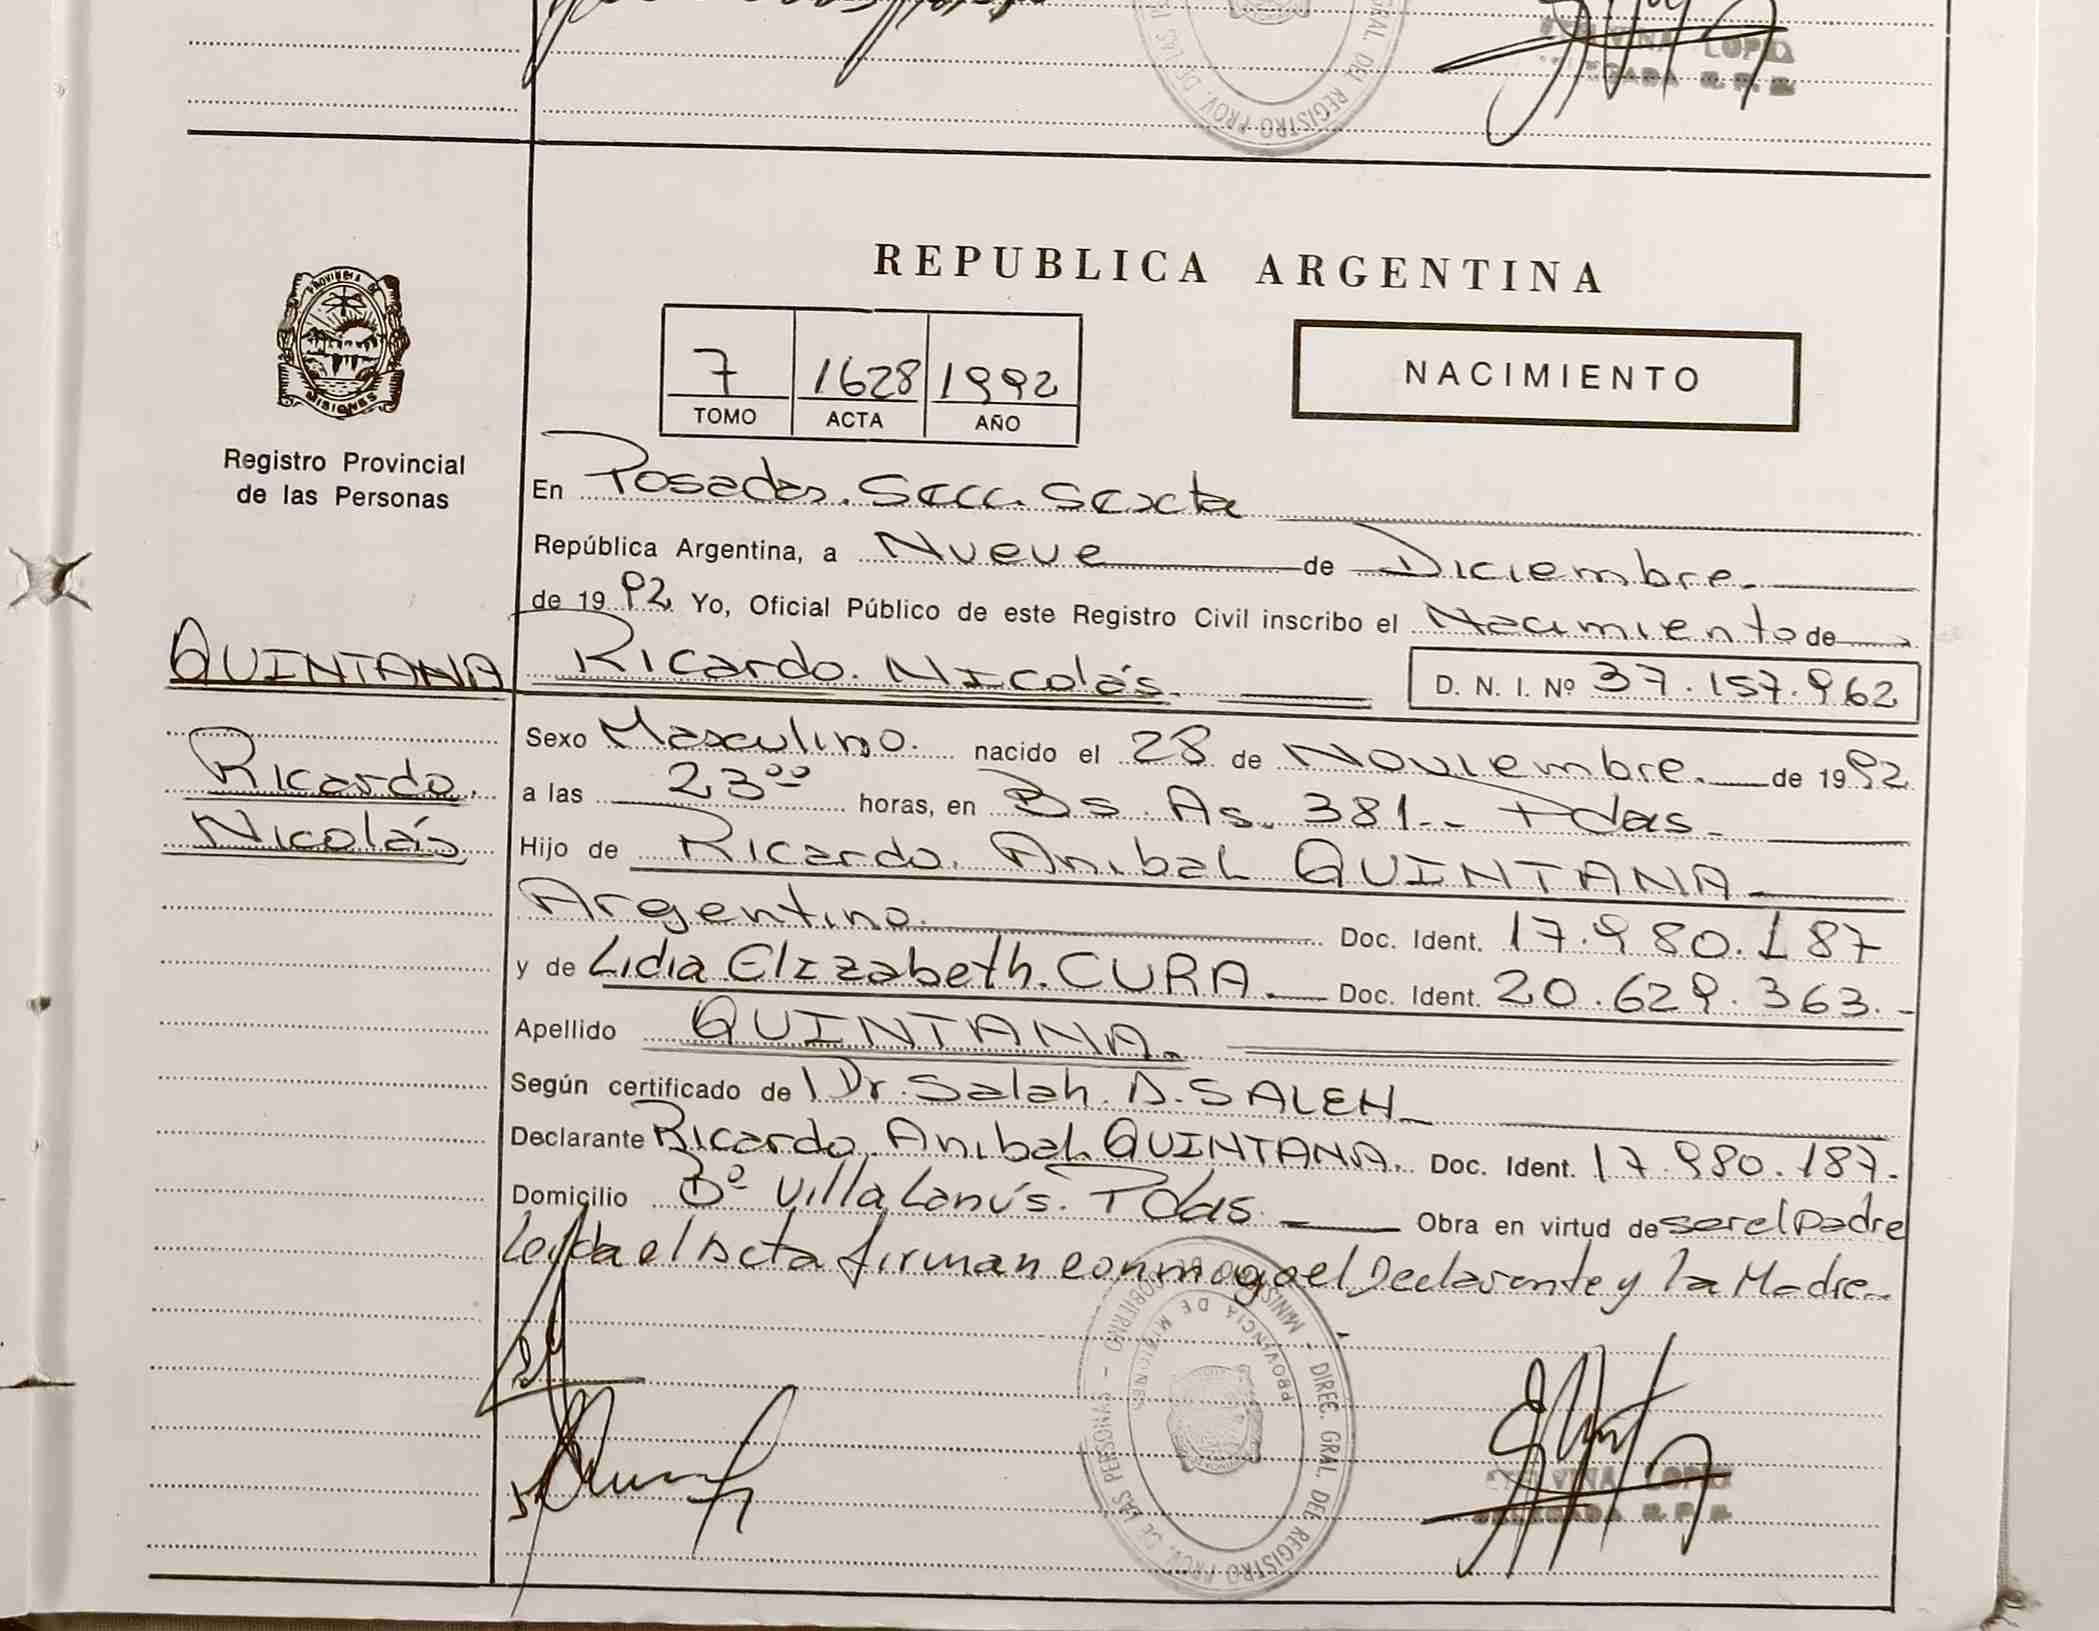 LOPEZ
REPUBLICA ARGENTINA
PROVINCIA DE
MISIONES
7 1628 1992
TOMO ACTA AÑO
NACIMIENTO
Registro Provincial
de las Personas
En Posadas. Secc. Sexta
República Argentina, a Nueve de Diciembre.
de 1992 Yo, Oficial Público de este Registro Civil inscribo el Nacimiento de
QUINTANA Ricardo. Nicolás. D. N. I. Nº 37.157.962
Sexo Masculino. nacido el 28 de Noviembre. de 1992
Ricardo. a las 23⁰⁰ horas, en Bs. As. 381.- Pdas.
Nicolás Hijo de Ricardo. Anibal QUINTANA
Argentino. Doc. Ident. 17.980.187
y de Lidia Elizabeth. CURA. Doc. Ident. 20.629.363.-
Apellido QUINTANA.
Según certificado de l Dr. Salah. A. SALEH
Declarante Ricardo. Anibal. QUINTANA. Doc. Ident. 17.980.187.
Domicilio Bº Villa Lanús. Pdas. Obra en virtud de ser el padre
Leída el Acta firman conmigo el Declarante y la Madre
MINIS - DIREC. GRAL. DEL REGISTRO PROV. DE LAS PERSONAS -
PROVINCIA DE MISIONES
LOPEZ
DELEGADA R. P. P.